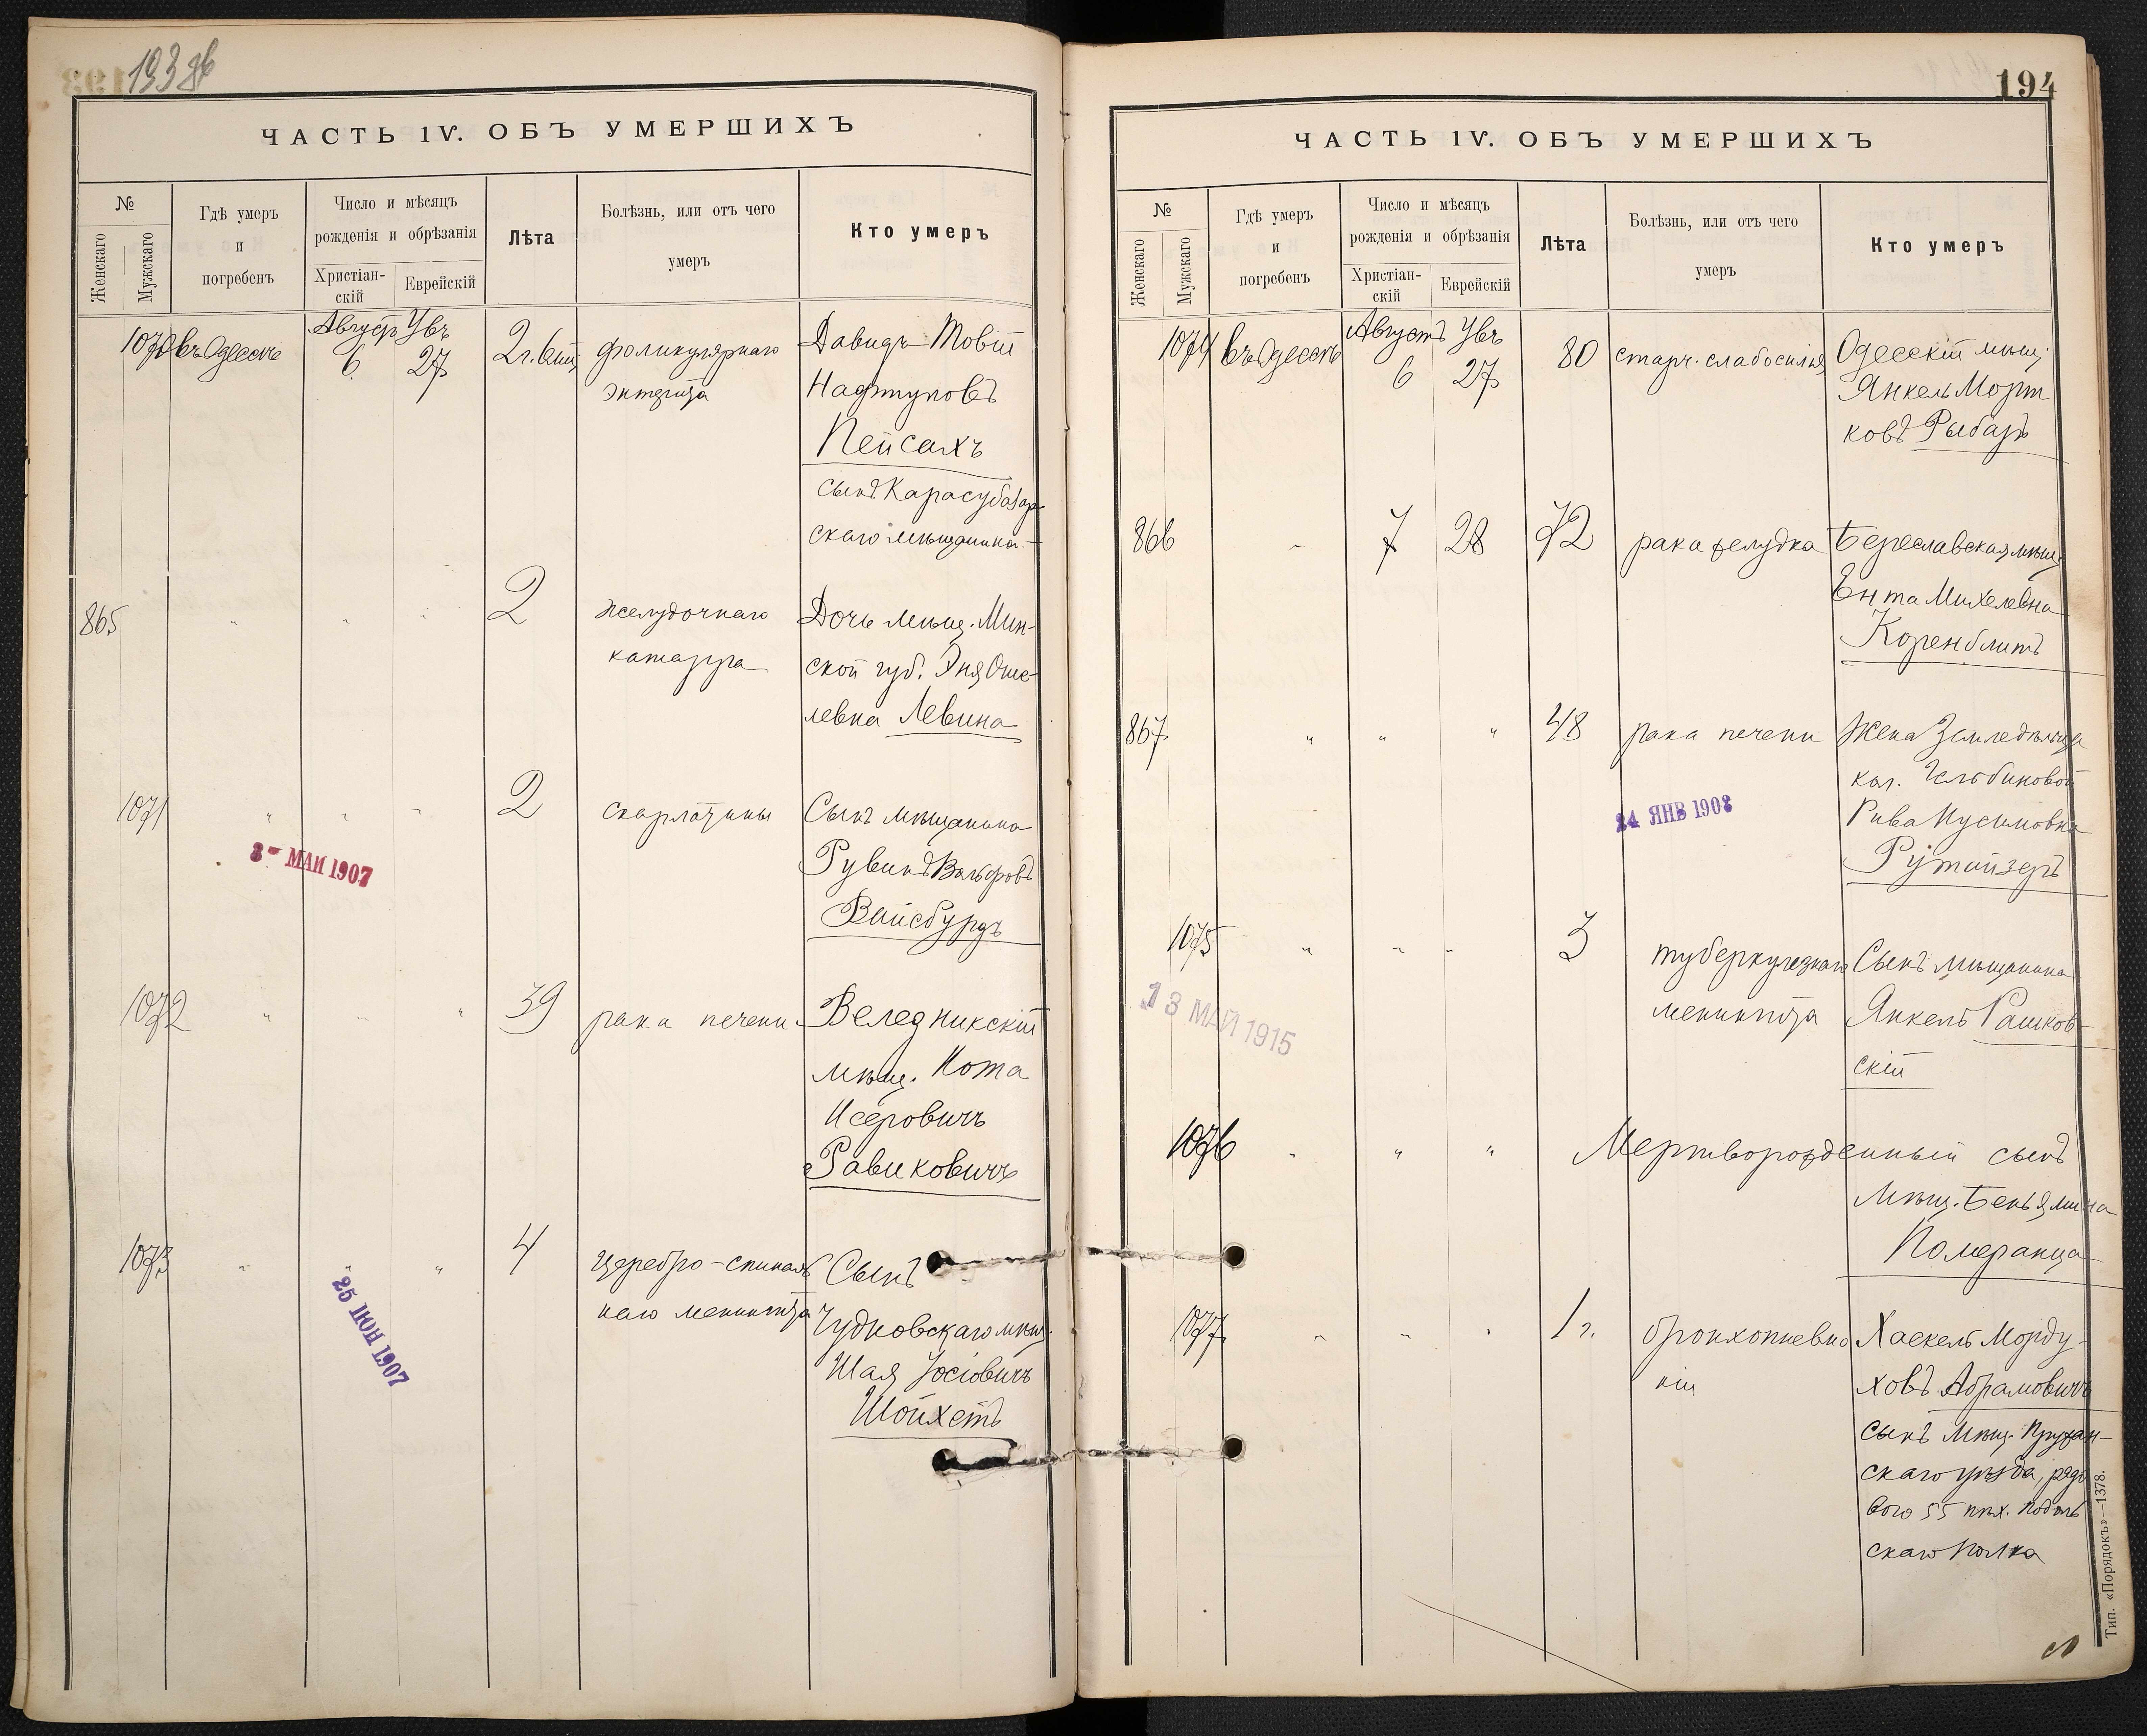 193 об
ЧАСТЬ IV. ОБЪ УМЕРШИХЪ
№
Женскаго
Мужскаго
Гдѣ умеръ
и
погребенъ
Число и мѣсяцъ
рожденія и обрѣзанія
Христіан-
скій
Еврейскій
Лѣта
Болѣзнь, или отъ чего
умеръ
Кто умеръ
1070 въ Одессѣ Августъ 6 Увъ 27 2 г. 6 м. фоликулярнаго Давидъ-Товій
энтерита Нафтуловъ
Пейсахъ
сынъ Карасубазар-
скаго мѣщанина.
865 " " " 2 желудочнаго Дочь мѣщ. Мин-
катарра ской губ. Эня Оше-
левна Левина
1071 " " " 2 скарлатины Сынъ мѣщанина
Рувинъ Вольфовъ
Вайсбурдъ
3 - МАЙ 1907
1072 " " " 39 рака печени. Веледникскій
мѣщ. Нота
Исеровичъ
Равиковичъ
1073 " " " 4 Церебро-спиналь Сынъ
наго менингита Чудновскаго мѣщ.
Шая Іосіовичъ
Шойхетъ
25 ІЮН 1907
194
ЧАСТЬ IV. ОБЪ УМЕРШИХЪ
№
Женскаго
Мужскаго
Гдѣ умеръ
и
погребенъ
Число и мѣсяцъ
рожденія и обрѣзанія
Христіан-
скій
Еврейскій
Лѣта
Болѣзнь, или отъ чего
умеръ
Кто умеръ
1074 въ Одессѣ Августъ 6 Увъ 27 80 старч. слабосилія Одесскій мѣщ.
Янкель Морт
ковъ Рыбаръ
866 " 7 28 72 рака желудка Береславская мѣщ.
Ента Михелевна
Коренблитъ
867 " " " 48 рака печени Жена Земледѣльца
кол.
Рива Нусимовна
Рутайзеръ
24 ЯНВ 1908
1075 " " " 3 туберкулезнаго Сынъ мѣщанина
менингита Янкель Рашков-
скій
13 МАЙ 1915
1076 " " " Мертворожденный сынъ
мѣщ. Беньямина
Померанца
1077 " " " 1 г. бронхопневмо Хаскель Морду-
ніи ховъ Абрамовичъ
сынъ мѣщ. Пружан-
скаго уѣзда, рядо
вого 55 пѣх. Подоль
скаго полка
Тип. «Порядокъ»—1378.